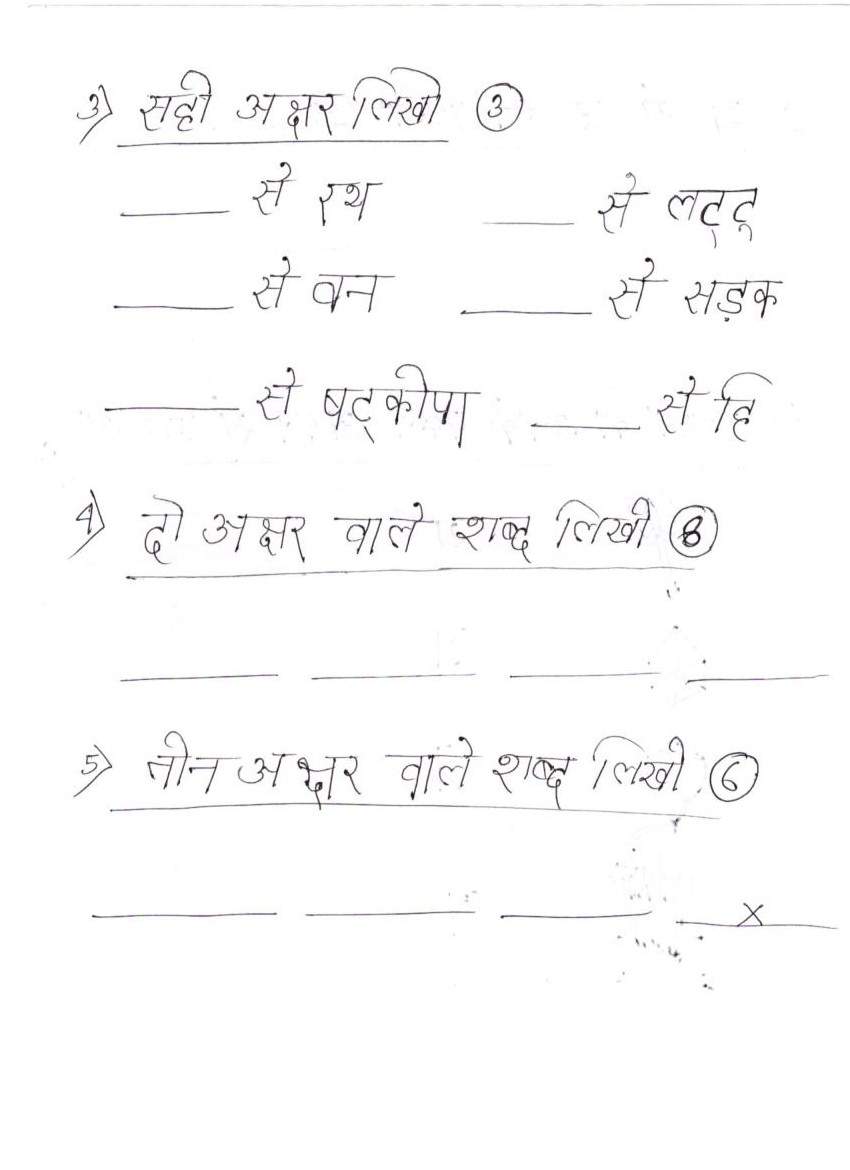 3) सही अक्षर लिखो (3)
____ से रथ ____ से लट्टू
____ से वन ____ से सड़क
____ से षट्कोपा ____ से हि
4) दो अक्षर वाले शब्द लिखो (8)
____ ____ ____ ____
5) तीन अक्षर वाले शब्द लिखो (6)
____ ____ ____ __x__